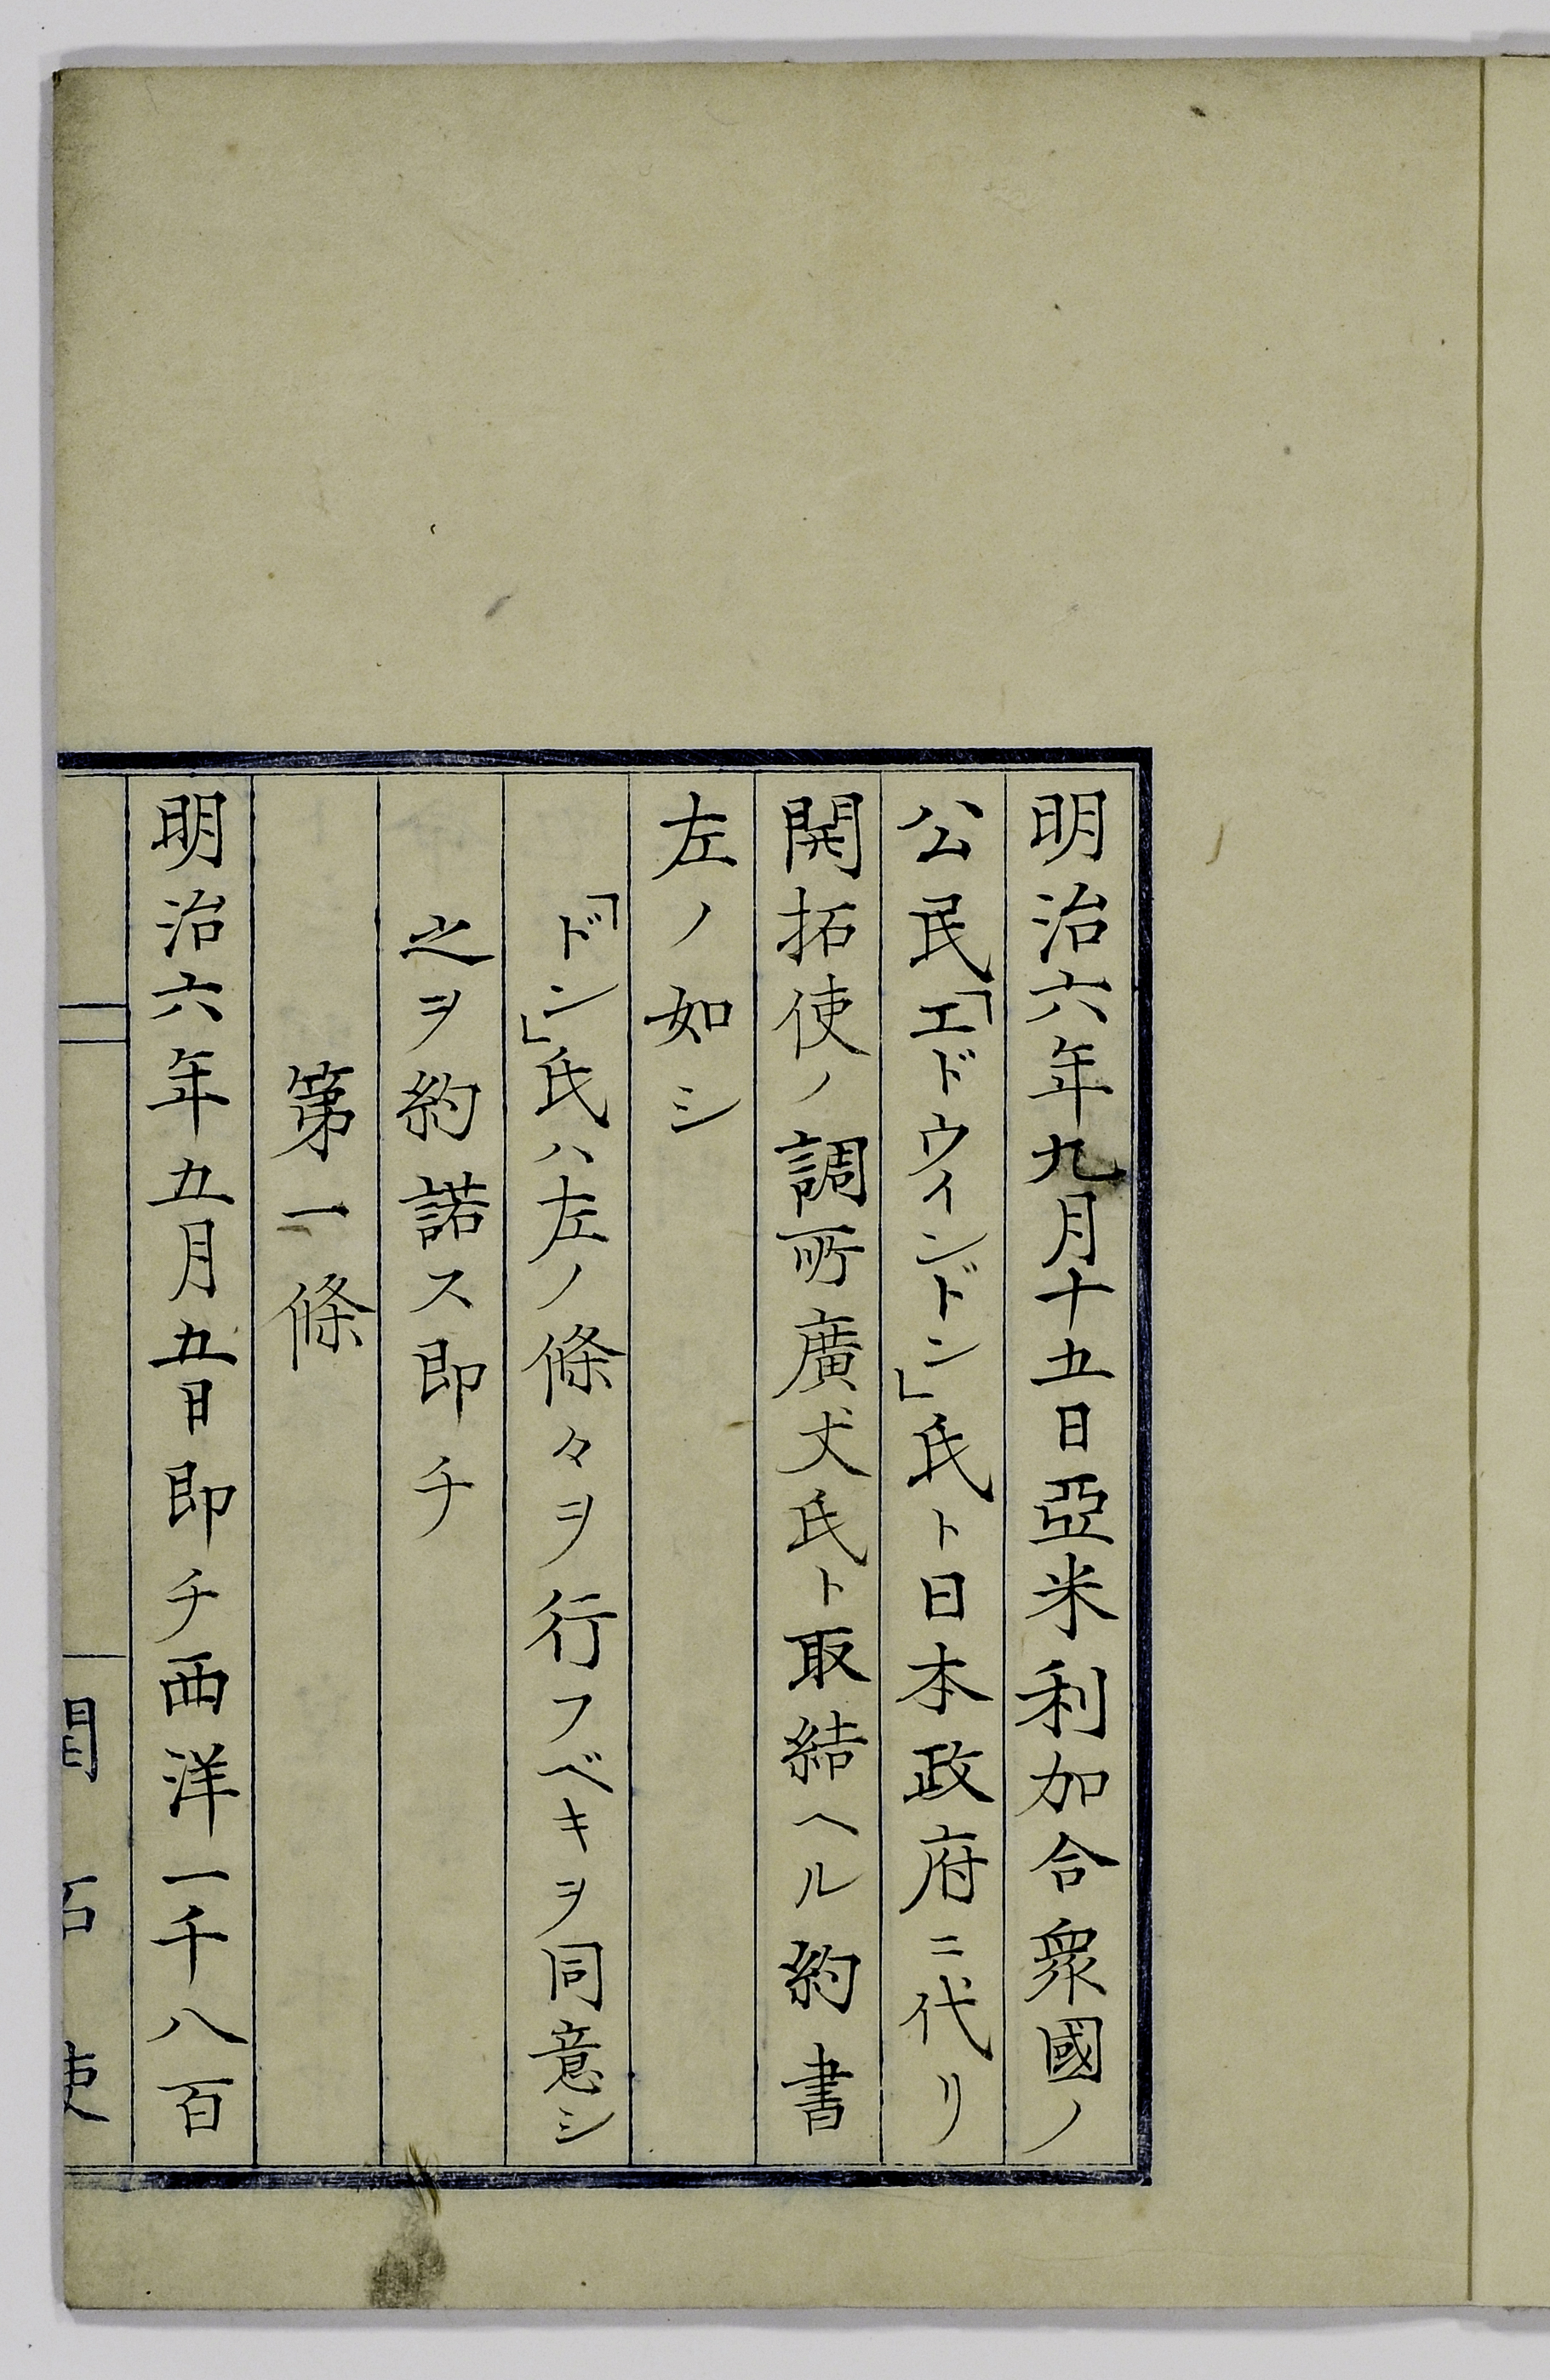 明治六年九月十五日亞米利加合衆國ノ
公民「エドウィンドン」氏ト日本政府ニ代リ
開拓使ノ調所廣丈氏ト取結ヘル約書
左ノ如シ
「ドン」氏ハ左ノ條々ヲ行フベキヲ同意シ
之ヲ約諾ス即チ
第一條
明治六年五月五日即チ西洋一千八百
開拓使